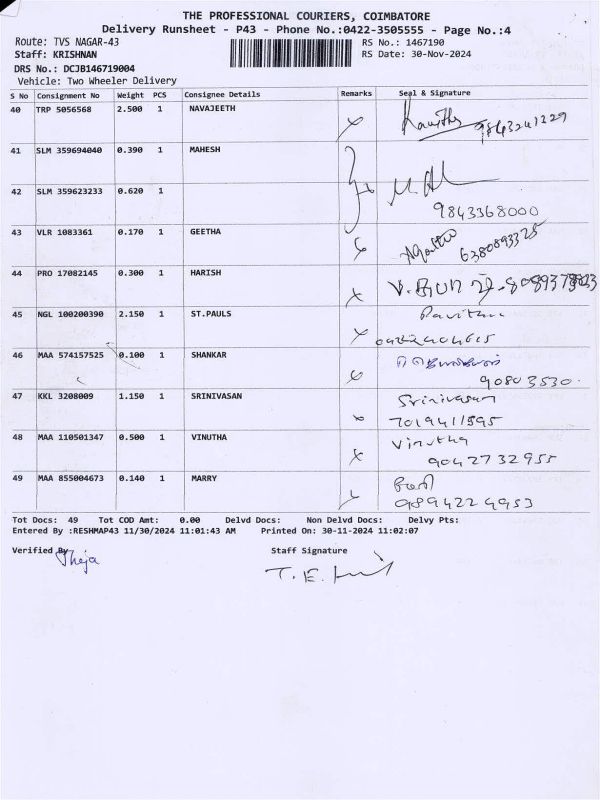 THE PROFESSIONAL COURIERS, COIMBATORE
Delivery Runsheet - P43 - Phone No.:0422-3505555 - Page No.:4
Route: TVS NAGAR-43 RS No.: 1467190
Staff: KRISHNAN RS Date: 30-Nov-2024
DRS No.: DCJB146719004
Vehicle: Two Wheeler Delivery
S No Consignment No Weight PCS Consignee Details Remarks Seal & Signature
40 TRP 5056568 2.500 1 NAVAJEETH
41 SLM 359694040 0.390 1 MAHESH
42 SLM 359623233 0.620 1
9843368000
43 VLR 1083361 0.170 1 GEETHA
6380893325
44 PRO 17082145 0.300 1 HARISH
45 NGL 100200390 2.150 1 ST.PAULS
46 MAA 574157525 0.100 1 SHANKAR
90803530
47 KKL 3208009 1.150 1 SRINIVASAN Srinivasan
7019411595
48 MAA 110501347 0.500 1 VINUTHA Vinutha
9042732955
49 MAA 855004673 0.140 1 MARRY
9894224953
Tot Docs: 49 Tot COD Amt: 0.00 Delvd Docs: Non Delvd Docs: Delvy Pts:
Entered By :RESHMAP43 11/30/2024 11:01:43 AM Printed On: 30-11-2024 11:02:07
Verified By Theja Staff Signature